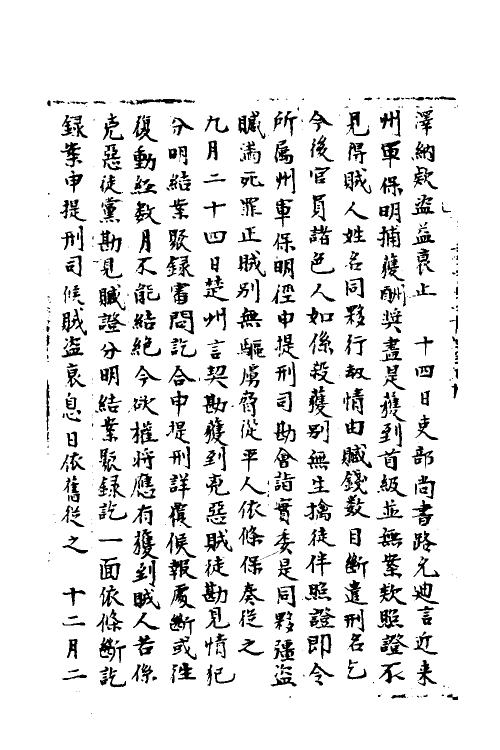 澤納欵盜益衰止　十四日吏部尚書路允迪言近来
州軍保明捕獲酬奬盡是獲到首級並無案欵照證不
見得賊人姓名同夥行刼情由贓錢数目斷遣刑名乞
今後官員諸色人如係殺獲别無生擒徒伴照證即令
所属州軍保明徑申提刑司勘會詣實委是同夥彊盜
贓滿死罪正賊别無驅虜脅從平人依條保奏從之
九月二十四日楚州言契勘獲到兇惡賊徒勘見情犯
分明結案聚録書問訖合申提刑詳覆候報處斷或往
復動經数月不能結絶今欲權將應有獲到賊人若係
兇惡徒黨勘見贓證分明結案聚録訖一面依條斷訖
録案申提刑司候賊盜衰息日依舊從之　十二月二